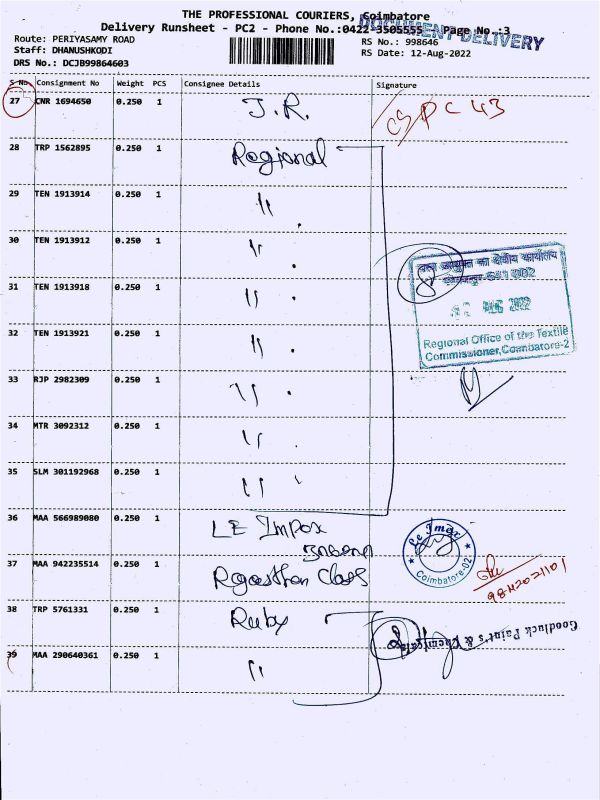 THE PROFESSIONAL COURIERS, Coimbatore
Delivery Runsheet - PC2 - Phone No.:0422-3505555 Page No.:3
DOCUMENT DELIVERY
Route: PERIYASAMY ROAD
RS No.: 998646
Staff: DHANUSHKODI
RS Date: 12-Aug-2022
DRS No.: DCJB99864603
S No Consignment No Weight PCS Consignee Details Signature
27 CNR 1694650 0.250 1 J.R.
28 TRP 1562895 0.250 1 Regional
29 TEN 1913914 0.250 1 "
30 TEN 1913912 0.250 1 "
31 TEN 1913918 0.250 1 "
32 TEN 1913921 0.250 1 "
33 RJP 2982309 0.250 1 "
34 MTR 3092312 0.250 1 "
35 SLM 301192968 0.250 1 "
वस्त्र आयुक्त का क्षेत्रीय कार्यालय
AUG 2022
Regional Office of the Textile
Commissioner, Coimbatore-2
36 MAA 566989080 0.250 1 LE Impex
Le Imex
Coimbatore-02
37 MAA 942235514 0.250 1 Rajasthan Class
38 TRP 5761331 0.250 1 Ruby
Goodluck Paint's & Chemicals
39 MAA 290640361 0.250 1 "